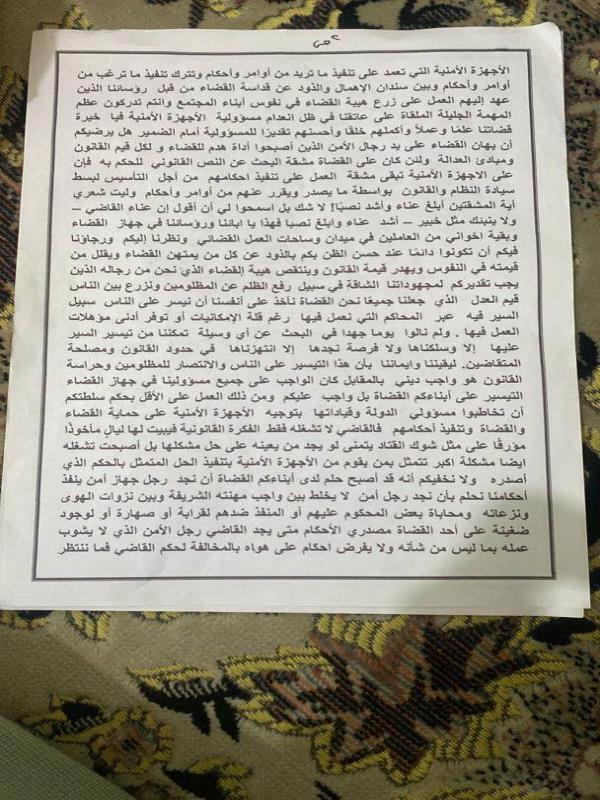 ص٢
الأجهزة الأمنية التي تعمد على تنفيذ ما تريد من أوامر وأحكام وتترك تنفيذ ما ترغب من
أوامر وأحكام وبين سندان الإهمال والذود عن قداسة القضاء من قبل رؤسائنا الذين
عهد إليهم العمل على زرع هيبة القضاء في نفوس أبناء المجتمع وانتم تدركون عظم
المهمة الجليلة الملقاة على عاتقنا في ظل انعدام مسؤولية الأجهزة الأمنية فيا خيرة
قضاتنا علمًا وعملاً وأكملهم خلقًا وأحسنهم تقديرًا للمسؤولية أمام الضمير هل يرضيكم
أن يهان القضاء على يد رجال الأمن الذين أصبحوا أداة هدم للقضاء و لكل قيم القانون
ومبادئ العدالة ولئن كان على القضاة مشقة البحث عن النص القانوني للحكم به فإن
على الاجهزة الأمنية تبقى مشقة العمل على تنفيذ احكامهم من أجل التأسيس لبسط
سيادة النظام والقانون بواسطة ما يصدر ويقرر عنهم من أوامر وأحكام وليت شعري
أية المشقتين أبلغ عناء وأشد نصبًا! لا شك بل اسمحوا لي أن أقول إن عناء القاضي –
ولا ينبئك مثل خبير – أشد عناء وابلغ نصبا فهذا يا ابائنا ورؤساءنا في جهاز القضاء
وبقية اخواني من العاملين في ميدان وساحات العمل القضائي ونظرنا إليكم ورجاؤنا
فيكم أن تكونوا دائمًا عند حسن الظن بكم بالذود عن كل من يمتهن القضاء ويقلل من
قيمته في النفوس ويهدر قيمة القانون وينتقص هيبة القضاء الذي نحن من رجاله الذين
يجب تقديركم لمجهوداتنا الشاقة في سبيل رفع الظلم عن المظلومين ونزرع بين الناس
قيم العدل الذي جعلنا جميعًا نحن القضاة نأخذ على أنفسنا أن نيسر على الناس سبيل
السير فيه عبر المحاكم التي نعمل فيها رغم قلة الإمكانيات أو توفر أدنى مؤهلات
العمل فيها . ولم نالوا يوما جهدا في البحث عن أي وسيلة تمكننا من تيسير السير
عليها إلا وسلكناها ولا فرصة نجدها إلا انتهزناها في حدود القانون ومصلحة
المتقاضين. ليقيننا وايماننا بأن هذا التيسير على الناس والانتصار للمظلومين وحراسة
القانون هو واجب ديني بالمقابل كان الواجب على جميع مسؤولينا في جهاز القضاء
التيسير على أبناءكم القضاة بل واجب عليكم ومن ذلك العمل على الأقل بحكم سلطتكم
أن تخاطبوا مسؤولي الدولة وقياداتها بتوجيه الأجهزة الأمنية على حماية القضاء
والقضاة وتنفيذ أحكامهم فالقاضي لا تشغله فقط الفكرة القانونية فيبيت لها ليالٍ مأخوذًا
مؤرقًا على مثل شوك القتاد يتمنى لو يجد من يعينه على حل مشكلها بل أصبحت تشغله
ايضا مشكلة اكبر تتمثل بمن يقوم من الأجهزة الأمنية بتنفيذ الحل المتمثل بالحكم الذي
أصدره ولا نخفيكم أنه قد أصبح حلم لدى أبناءكم القضاة أن نجد رجل جهاز أمن ينفذ
أحكامنا نحلم بأن نجد رجل أمن لا يخلط بين واجب مهنته الشريفة وبين نزوات الهوى
ونزعاته ومحاباة بعض المحكوم عليهم أو المنفذ ضدهم لقرابة أو صهارة أو لوجود
ضغينة على أحد القضاة مصدري الأحكام متى يجد القاضي رجل الأمن الذي لا يشوب
عمله بما ليس من شأنه ولا يفرض احكام على هواه بالمخالفة لحكم القاضي فما ننتظر